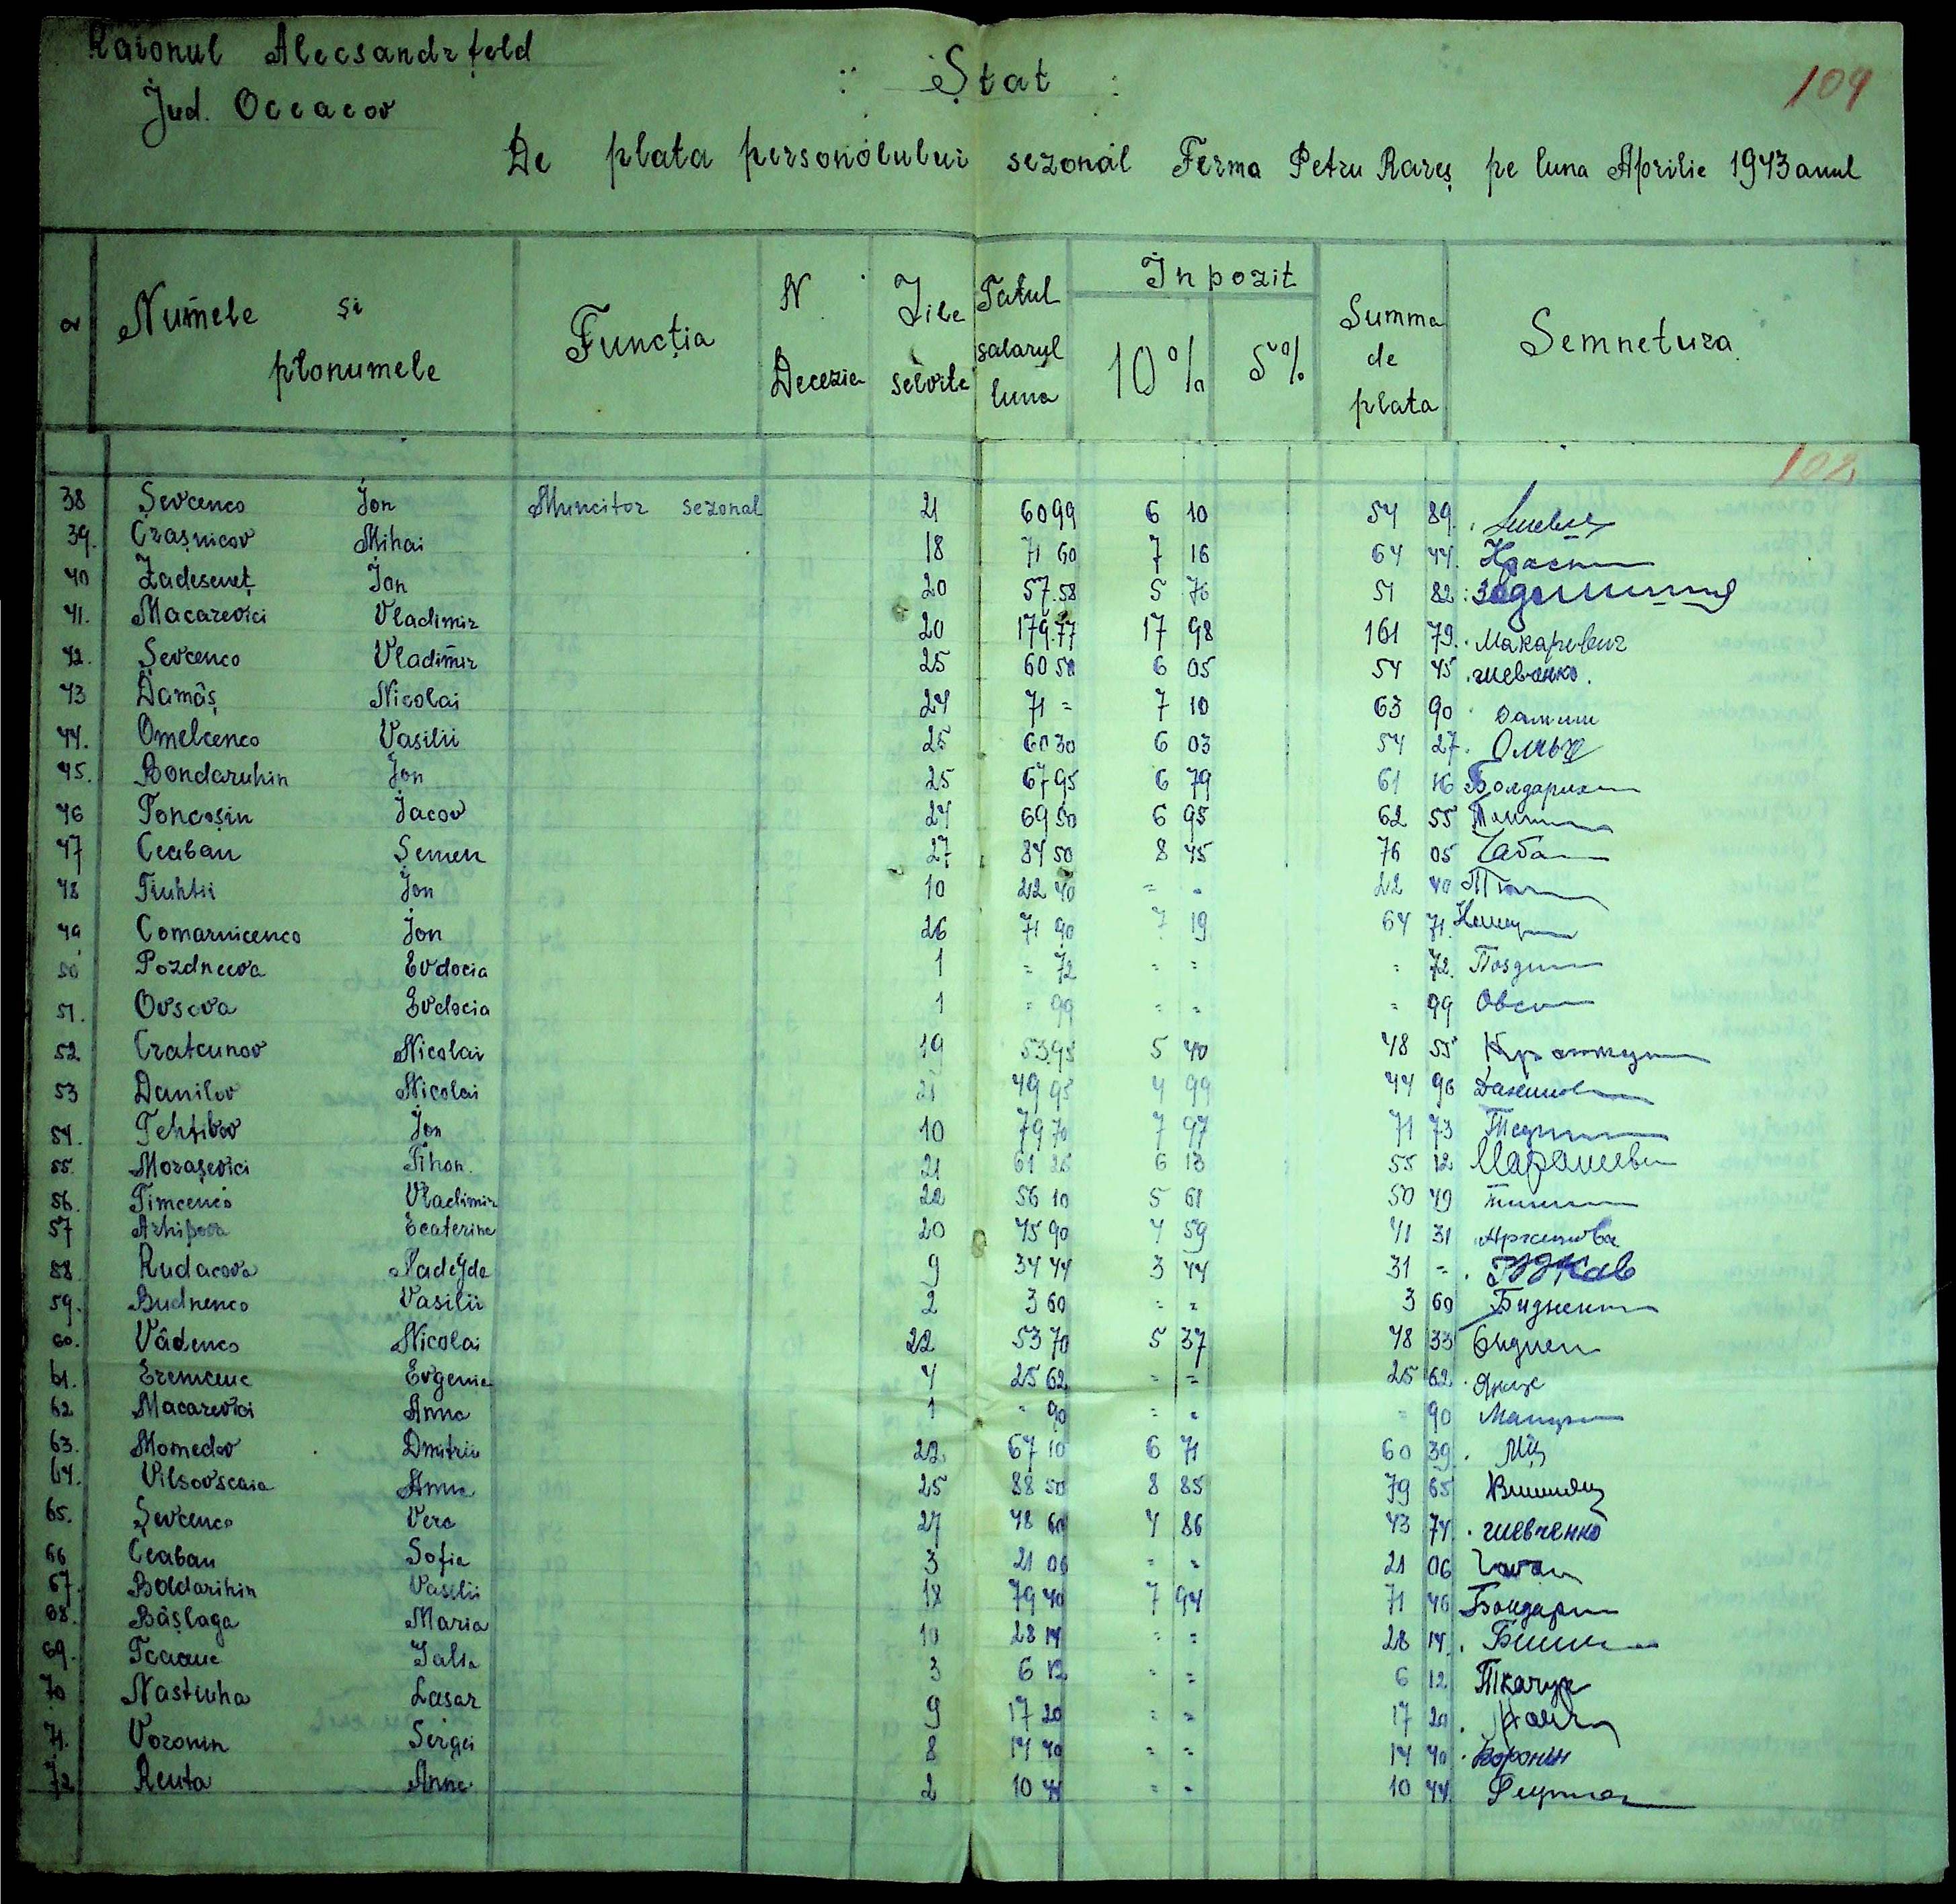 Raionul Alecsandrfeld
Jud. Oceacov
Ștat
109
De plata personolului sezonal Ferma Petru Rareș pe luna Aprilie 1943 anul
Numele și plonumele Funcția N Decezie Zile servite Tatul salaryl luna Inpozit 10% 5% Summa de plata Semnetura
102
38 Șevcenco Jon Muncitor sezonal 21 60 99 6 10 54 89
39. Crașnicov Mihai 18 71 60 7 16 64 44
40 Zadeseneț Jon 20 57.58 5 76 51 82
41. Macarevici Vladimir 20 179.77 17 98 161 79. Макаревич
42. Șevcenco Vladimir 25 60 50 6 05 54 45 шевченко
43 Damâș Nicolai 24 71 = 7 10 63 90
44. Omelcenco Vasilii 25 60 30 6 03 54 27.
45. Bondaruhin Jon 25 67 95 6 79 61 16
46 Toncoșin Jacov 24 69 50 6 95 62 55
47 Ceaban Semen 27 84 50 8 45 76 05 Чабан
48 Tiuhtii Jon 10 22 40 = = 22 40
49 Comarnicenco Jon 26 71 90 7 19 64 71.
50 Pozdneeva Evdocia 1 = 72 = = = 72.
51. Ovsova Evdocia 1 = 99 = = = 99
52 Cratcunov Nicolai 19 53 95 5 40 48 55
53 Danilov Nicolai 21 49 95 4 99 44 96
54. Tehtibov Jon 10 79 70 7 97 71 73
55. Morașevici Tihon. 21 61 25 6 13 55 12
56. Timcenco Vladimir 22 56 10 5 61 50 49
57 Arhipova Ecaterina 20 45 90 4 59 41 31
58 Rudacova Nadejda 9 34 44 3 44 31 =
59. Budnenco Vasilii 2 3 60 = = 3 60
60. Vâdenco Nicolai 22 53 70 5 37 48 33
61. Evgenia 4 25 62 = = 25 62
62 Macarevici Anna 1 = 90 = = = 90
63. Momedov Dmitrii 22 67 10 6 71 60 39.
64. Vilsovscaia Anna 25 88 50 8 85 79 65
65. Șevcenco Vera 27 48 60 4 86 43 74. шевченко
66 Ceaban Sofia 3 21 06 = = 21 06
67. Boldarihin Vasilii 18 79 40 7 94 71 46
68. Bâșlaga Maria 10 28 14 = = 28 14.
69. 3 6 12 = = 6 12 Ткачук
70 Nastiuha Lasar 9 17 20 = = 17 20
71. Voronin Sergei 8 14 40 = = 14 40 Воронин
72 Reuta Anna 2 10 44 = = 10 44